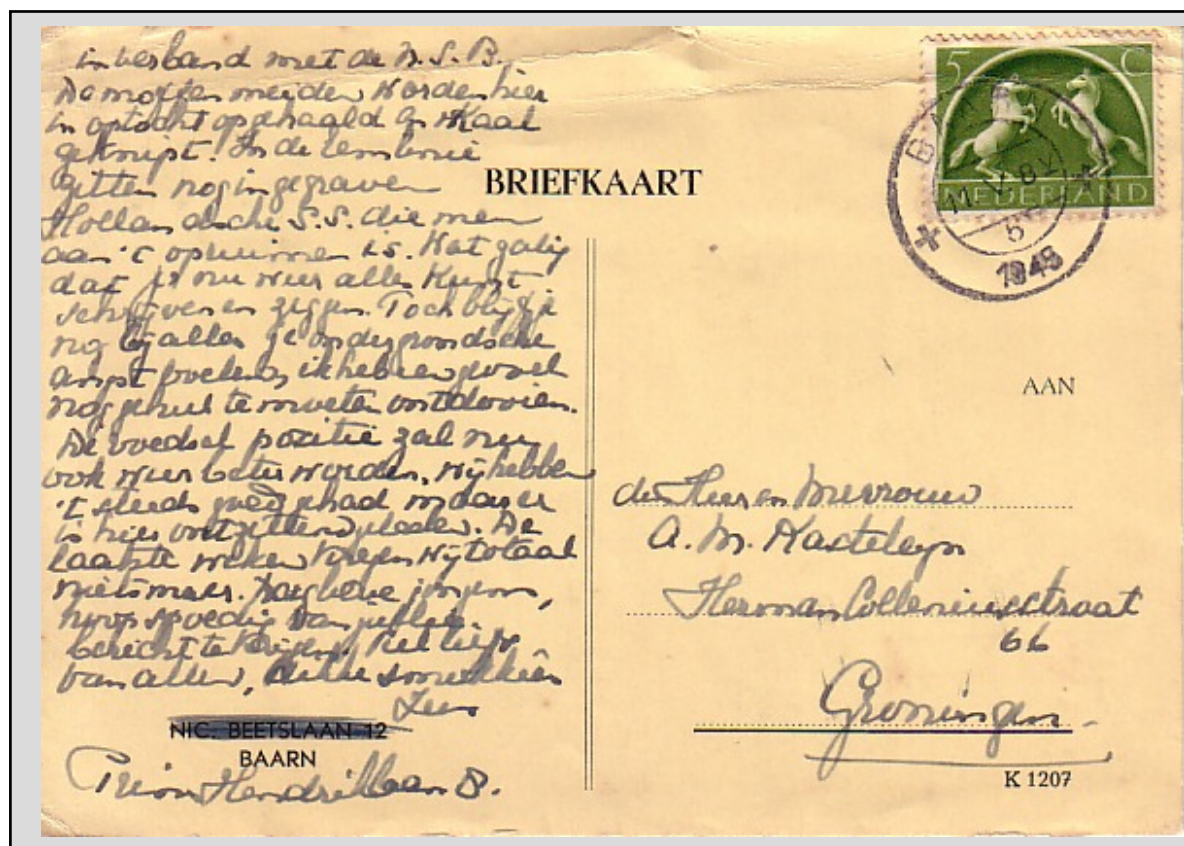 in verband met de N.S.B.
De moffenmeiden worden hier
in optocht opgehaald en kaal
geknipt. In de
zitten nog ingegraven
Hollandsche S.S. die men
aan 't opruimen is. Wat zalig
dat je nu weer alles kunt
schrijven en zeggen. Toch blijf je
nog bij alles je ondergrondsche
angst voelen, ik heb een gevoel
nog geheel te moeten ontdooien.
De voedsel positie zal nu
ook weer beter worden, wij hebben
't steeds goed gehad maar er
is hier ontzettend geleden. De
laatste weken kregen wij totaal
niets meer. Dag lieve jongens,
hoop spoedig van jullie
bericht te krijgen. Veel liefs
van allen,
NIC. BEETSLAAN 12
BAARN
Prins Hendriklaan 8.
BRIEFKAART
5 C
NEDERLAND
BAARN
11.V.8V
1945
AAN
den Heer en Mevrouw
A. M. Kasteleyn
Herman Colleniusstraat
66
Groningen
K 1207